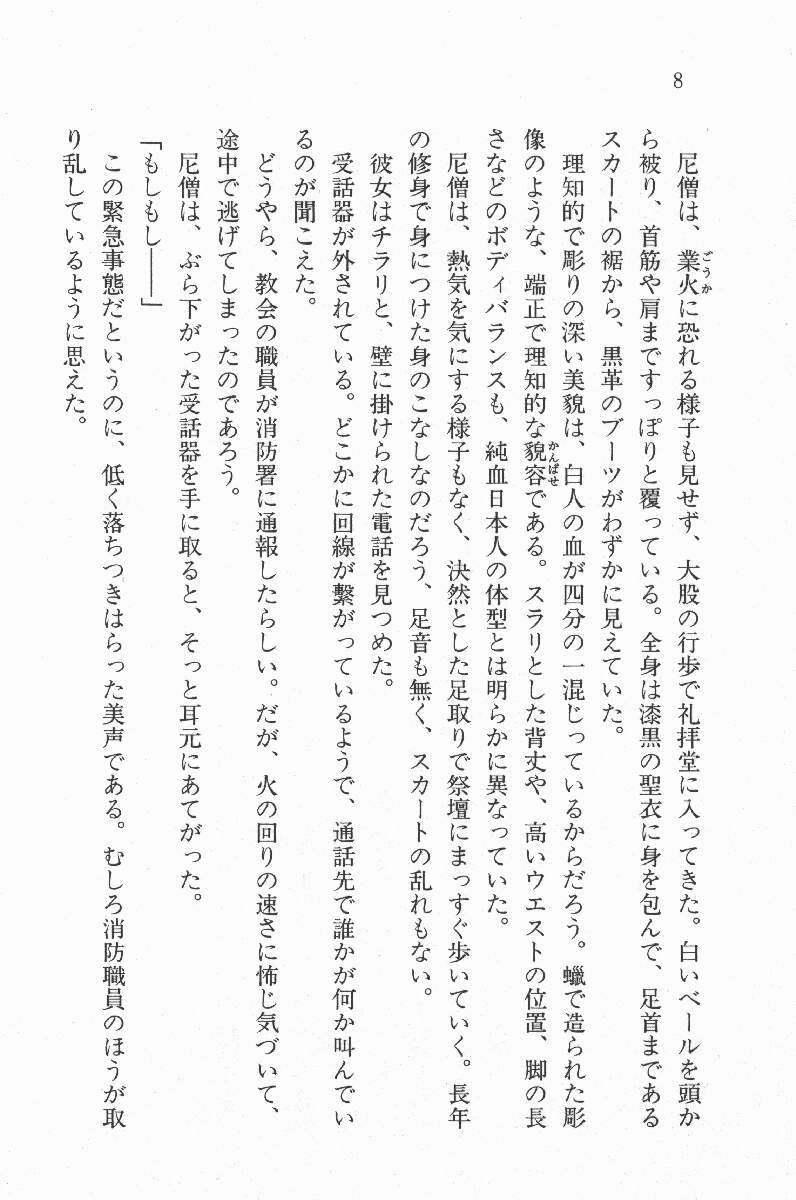 8
尼僧は、業火に恐れる様子も見せず、大股の行歩で礼拝堂に入ってきた。白いベールを頭か
ら被り、首筋や肩まですっぽりと覆っている。全身は漆黒の聖衣に身を包んで、足首まである
スカートの裾から、黒革のブーツがわずかに見えていた。
理知的で彫りの深い美貌は、白人の血が四分の一混じっているからだろう。蠟で造られた彫
像のような、端正で理知的な貌容である。スラリとした背丈や、高いウエストの位置、脚の長
さなどのボディバランスも、純血日本人の体型とは明らかに異なっていた。
尼僧は、熱気を気にする様子もなく、決然とした足取りで祭壇にまっすぐ歩いていく。長年
の修身で身につけた身のこなしなのだろう、足音も無く、スカートの乱れもない。
彼女はチラリと、壁に掛けられた電話を見つめた。
受話器が外されている。どこかに回線が繫がっているようで、通話先で誰かが何か叫んでい
るのが聞こえた。
どうやら、教会の職員が消防署に通報したらしい。だが、火の回りの速さに怖じ気づいて、
途中で逃げてしまったのであろう。
尼僧は、ぶら下がった受話器を手に取ると、そっと耳元にあてがった。
「もしもし――」
この緊急事態だというのに、低く落ちつきはらった美声である。むしろ消防職員のほうが取
り乱しているように思えた。
ごうか
かんばせ